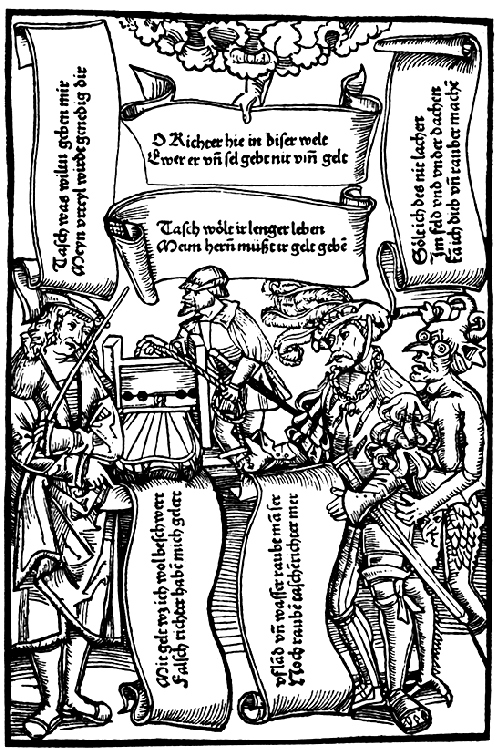 Tasch was wiltu geben mir
Meyn vrteyl wirdt genedig dir
O Richter hie in diser welt
Ewer er vñ sel gebt nit vm̃ gelt
Tasch wölt ir lenger leben
Meim herñ müßt ir gelt gebẽ
Solt ich des nit lachen
Im feld vnd vnder dachen
Kã ich dieb vñ rauber machẽ
Mit gelt wz ich wol beschwert
Falsch richter habẽ mich gelert
Vf lãd vñ wasser raubt mã ser
Noch raubẽ taschẽrichter mer